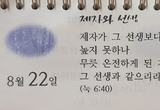 제자와 선생
제자가 그 선생보다
높지 못하나
무릇 온전하게 된
그 선생과 같으리라
(눅 6:40)
8월 22일